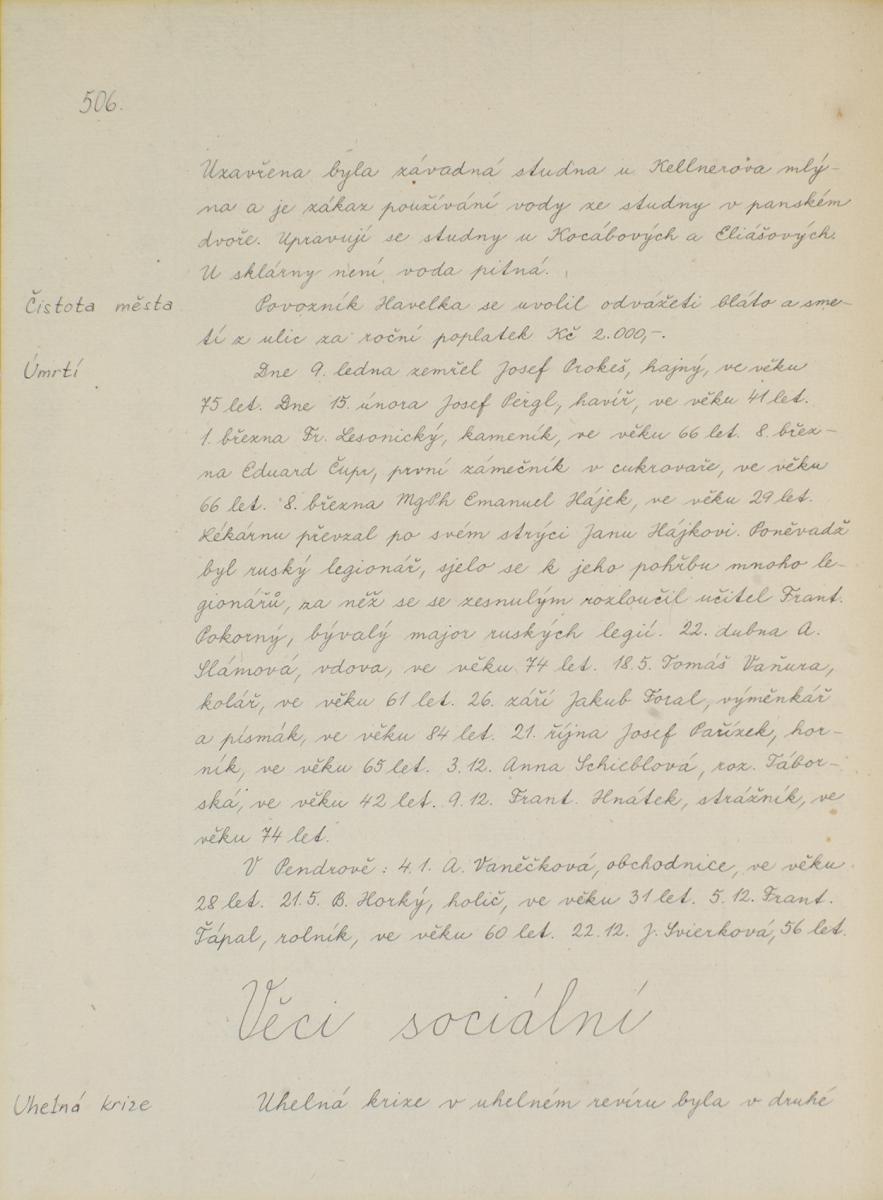 506.
Uzavřena byla závadná studna u Kellnerova mlý-
na a je zákaz používání vody ze studny v panském
dvoře. Upravují se studny u Kocábových a Eliášových.
U sklárny není voda pitná.
Čistota města
Povozník Havelka se uvolil odvážeti bláto a sme-
tí z ulic za roční poplatek Kč 2.000,-.
Úmrtí
Dne 9. ledna zemřel Josef Prokeš, hajný, ve věku
75 let. Dne 15. února Josef Pergl, havíř, ve věku 41 let.
1. března Fr. Lesonický, kameník, ve věku 66 let. 8. břez-
na Eduard Čupr, první zámečník v cukrovaře, ve věku
66 let. 8. března MgPh Emanuel Hájek, ve věku 29 let.
Lékárnu převzal po svém strýci Janu Hájkovi. Poněvadž
byl ruský legionář, sjelo se k jeho pohřbu mnoho le-
gionářů, za něž se se zesnulým rozloučil učitel Frant.
Pokorný, bývalý major ruských legií. 22. dubna A.
Slámová, vdova, ve věku 74 let. 18.5. Tomáš Vaňura,
kolář, ve věku 61 let. 26. září Jakub Foral, výměnkář
a písmák, ve věku 84 let. 21. října Josef Pařízek, hor-
ník, ve věku 65 let. 3.12. Anna Schieblová, roz. Tábor-
ská, ve věku 42 let. 9.12. Frant. Hnátek, strážník, ve
věku 74 let.
V Pendrově: 4.1. A. Vaněčková, obchodnice, ve věku
28 let. 21.5. B. Horký, holič, ve věku 31 let. 5.12. Frant.
Ťápal, rolník, ve věku 60 let. 22.12. J. Svierková, 56 let.
Věci sociální
Uhelná krize
Uhelná krize v uhelném revíru byla v druhé